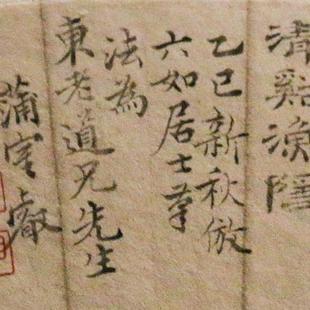 清谿漁隱
乙巳新秋倣
六如居士筆
法為
東老道兄先生
蒲室叡